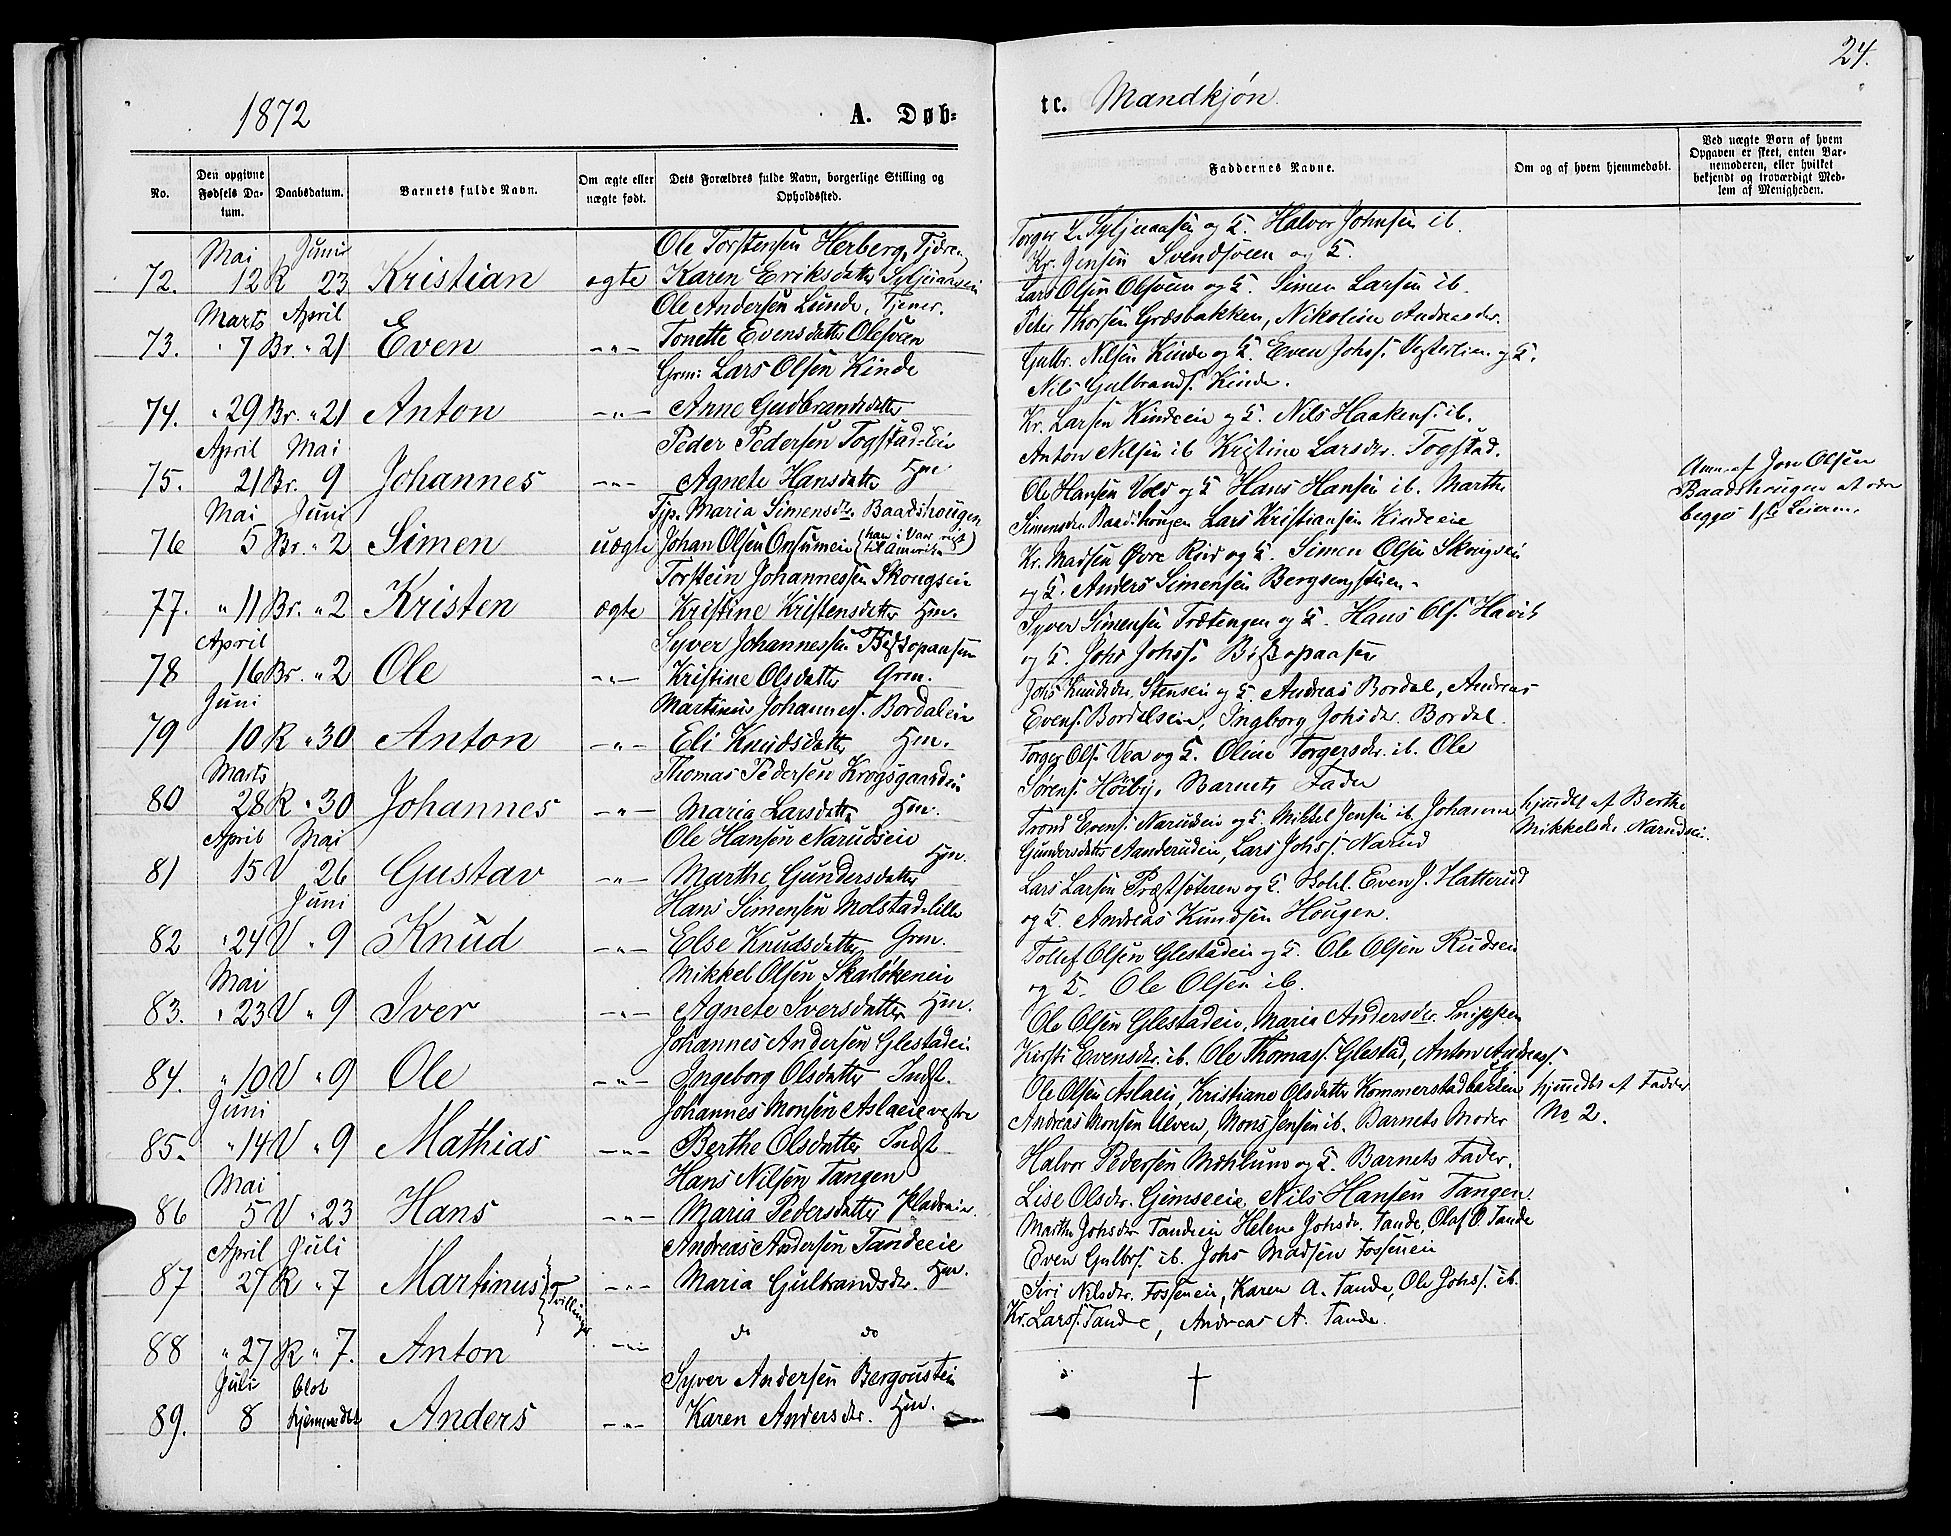 24.
1872
A. Døb-
te. Mandkjøn.
No.
Den opgivne Fødsels Datum.
Daabsdatum.
Barnets fulde Navn.
Om ægte eller uægte født.
Dets Forældres fulde Navn, borgerlige Stilling og Opholdssted.
Faddernes Navne.
Om og af hvem hjemmedøbt.
Ved uægte Børn af hvem Opgaven er skeet, enten Barnemoderen, eller hvilket bekjendt og troværdigt Medlem af Menigheden.
Mai Juni Ole Torstensen Herberg, Tjdren
72. 12 R 23 Kristian ægte Karen Eriksdatter Syljuaasen
Marts April Ole Andersen Lunde, Tjener.
73. " 7 Br. " 21 Even -"- Tonette Evensdatter Olesveen
Grm: Lars Olsen Kinde
74. " 29 Br. " 21 Anton -"- Anne Gudbrandsdatter
April Mai Peder Pedersen Togstadeie
75. 21 Br. 9 Johannes -"- Agnete Hansdatter Hm.
Mai Juni Pip. Maria Simensdr. Baadshougen
76 5 Br. " 2 Simen uægte Johan Olsen Onsumeie (han i Vaar reist til Amerika)
Torstein Johannessen Skougseie
77. " 11 Br. " 2 Kristen ægte Kristine Kristensdatter Hm.
April Syver Johannessen Biskopaasen
78 16 Br. " 2 Ole -"- Kristine Olsdatter Grm.
Juni Martinus Johannes. Bordaleie
79 10 R " 30 Anton -"- Eli Knudsdatter Hm.
Marts Thomas Pedersen Krogsgaardeie
80 28 R " 30 Johannes -"- Maria Larsdatter Hm.
April Mai Ole Hansen Narudseie
81 15 V 26 Gustav -"- Marthe Gundersdatter Hm.
Juni Hans Simensen Molstad lille
82 " 24 V " 9 Knud -"- Else Knudsdatter Grm.
Mai Mikkel Olsen Skarløkeneie
83. " 23 V " 9 Iver -"- Agnete Iversdatter Hm.
Johannes Andersen Glestadeie
84. " 10 V " 9 Ole -"- Ingeborg Olsdatter Indst.
Juni Johannes Monsen Aslaeie vestre
85. " 14 V " 9 Mathias -"- Berthe Olsdatter Indst
Mai Hans Nilsen Tangen
86 5 V " 23 Hans -"- Maria Pedersdatter Pladseie
April Juli Andreas Andersen Tandeeie
87 27 R " 7 Martinus Tvillinger -"- Maria Gulbrandsdr. Hm.
88 " 27 R " 7. Anton -"- do do
Juli blot Syver Andersen Bergousteie
89. 8 hjemmedbt Anders -"- Karen Andersdr. Hm.
Torger L. Syljuaasen og K. Halvor Johnsen ib.
Kr. Jensen Svendsveen og K.
Lars Olsen Olsveen og K. Simen Larsen ib.
Peter Thorsen Grdsbakken, Nikoline Andreasdr.
Gulbr. Nilsen Kinde og K. Even Johs. Vesterlien og K.
Nils Gulbrands. Kinde.
Kr. Larsen Kindeeie og K. Nils Haakens. ib.
Anton Nilsen ib Kristine Larsdr. Togstad.
Ole Hansen Vold og K Hans Hansen ib. Marthe
Simensdr. Baadshougen Lars Kristiansen Kindeeie
Kr. Madsen Øvre Rud og K. Simen Olsen Skougseie
og K. Anders Simensen Bergsengstuen.
Syver Simensen Trætengen og K. Hans Ols. Havik
og K. Johs Johs. Biskopaasen
Johs Knudsdr. Stenseie og K. Andreas Bordal, Andreas
Evens. Bordalseie, Ingborg Johsdr. Bordal.
Torger Ols. Vea og K. Oline Torgersdr. ib. Ole
Sørens. Høiby. Barnets Fader
Trond Evens. Narudeie og K. Mikkel Jensen ib. Johanne
Gundersdatter Aanderudeie, Lars Johs. Narud
Lars Larsen Præstsæteren og K. Even J. Hatterud
og K. Andreas Knudsen Hougen.
Tollef Olsen Glestadeie og K. Ole Olsen Rudseie
og K. Ole Olsen ib.
Ole Olsen Glestadeie, Maria Andersdr. Snippen
Kirsti Evensdr. ib. Ole Thomas. Glestad, Anton Andreas.
Ole Olsen Aslaeie, Kristiane Olsdatter Kommerstadbakken
Andreas Monsen Ulven, Mons Jensen ib. Barnets Moder
Halvor Pedersen Mæhlum og K. Barnets Fader.
Lise Olsdr. Gimseeie Nils Hansen Tangen.
Marthe Johsdr Tandeeie Helene Johsdr. Tande, Olaf O. Tande
Even Gulbrs. ib. Johs Madsen Fosseneie
Siri Nilsdr. Fosseneie, Karen A. Tande, Ole Johs. ib.
Kr. Lars. Tande, Andreas A. Tande.
†
hjmdbt af Berthe
Mikkelsdr Narudeie.
hjemdbt af Fadder
No 2.
Anm. af Jon Olsen
Baadshougen at være
begges 1ste Leierm.